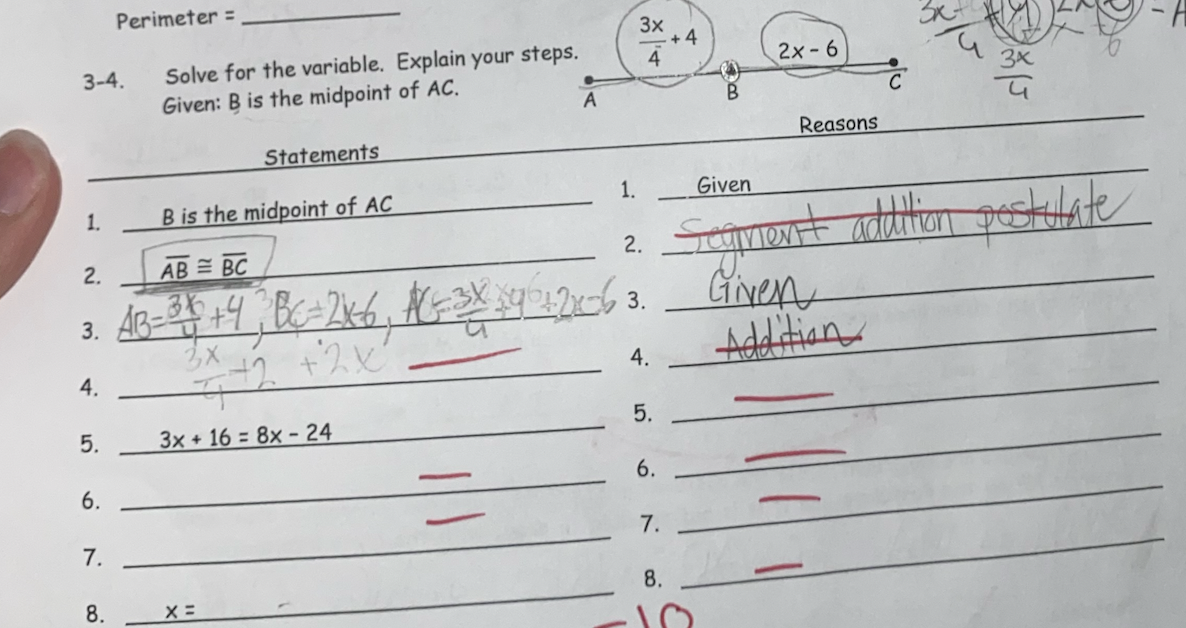 Perimeter =
3-4. Solve for the variable. Explain your steps.
Given: B is the midpoint of AC.
3x/4 + 4
2x - 6
A B C
3x/4
Statements Reasons
1. B is the midpoint of AC 1. Given
2. AB ≅ BC 2. Segment addition postulate
3. AB = 3x/4 + 4, BC = 2x-6, AC = 3x/4 + 4 + 2x-6 3. Given
4. 3x/4 + 2 + 2x 4. Addition
5. 3x + 16 = 8x - 24 5.
6. 6.
7. 7.
8. x = 8.
-10